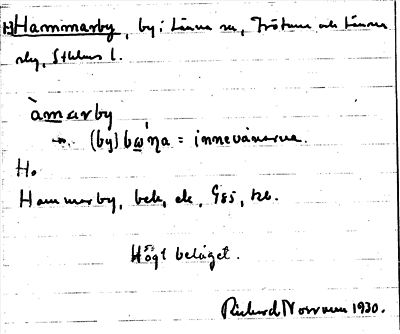 Hammarby, by i Länna sn, Frötuna och Länna
slg, Sthlms l.
àmarby
(by)bωʹŋa = innevånarna.
H.
Hammarby, bek, ek, G85, kb.
Högt beläget.
Rickard Norrman 1930.